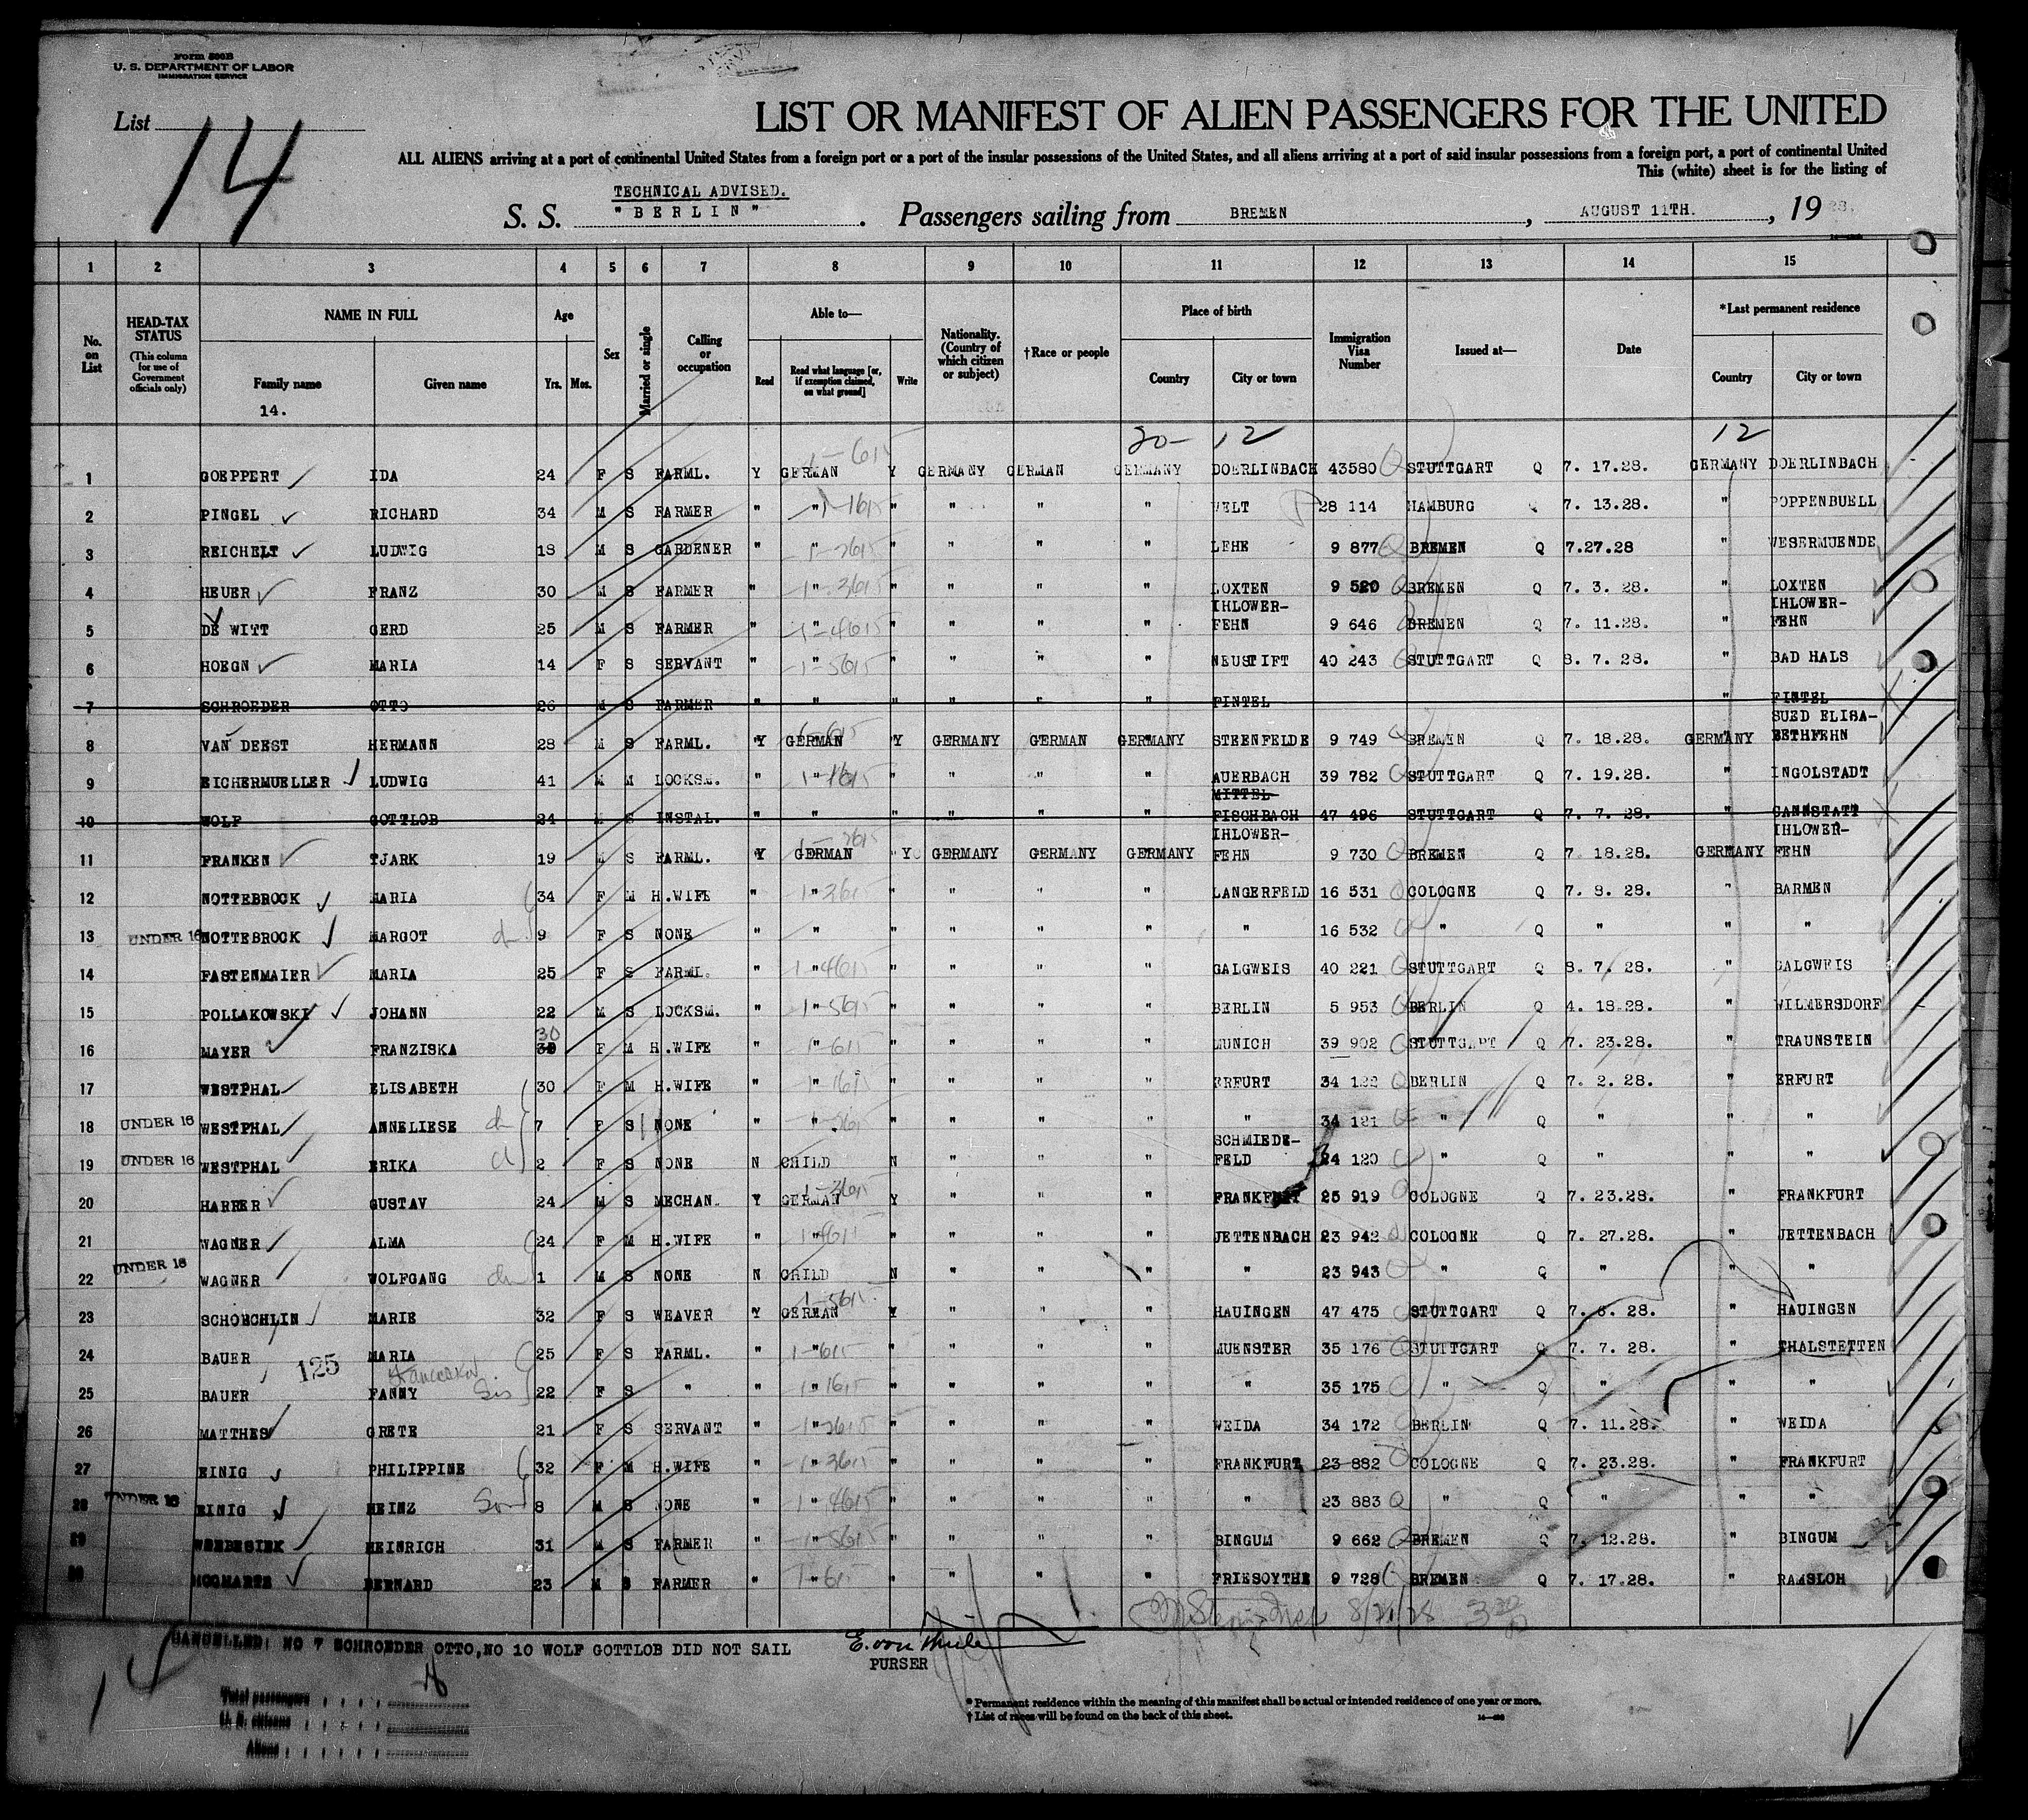 Form 500B
U. S. DEPARTMENT OF LABOR
IMMIGRATION SERVICE
List 14
LIST OR MANIFEST OF ALIEN PASSENGERS FOR THE UNITED
ALL ALIENS arriving at a port of continental United States from a foreign port or a port of the insular possessions of the United States, and all aliens arriving at a port of said insular possessions from a foreign port, a port of continental United
This (white) sheet is for the listing of
TECHNICAL ADVISED.
S. S. "BERLIN". Passengers sailing from BREMEN, AUGUST 11TH., 1928.
1 2 3 4 5 6 7 8 9 10 11 12 13 14 15
No. on List
HEAD-TAX STATUS (This column for use of Government officials only)
NAME IN FULL Family name Given name
14.
Age Yrs. Mos.
Sex
Married or single
Calling or occupation
Able to— Read Read what language [or, if exemption claimed, on what ground] Write
Nationality. (Country of which citizen or subject)
†Race or people
Place of birth Country City or town
Immigration Visa Number
Issued at—
Date
*Last permanent residence Country City or town
20- 12 12
1 GOEPPERT IDA 24 F S FARML. Y GERMAN Y GERMANY GERMAN GERMANY DOERLINBACH 43580 STUTTGART Q 7. 17.28. GERMANY DOERLINBACH
2 PINGEL RICHARD 34 M S FARMER " " " " " " WELT 28 114 HAMBURG Q 7. 13.28. " POPPENBUELL
3 REICHELT LUDWIG 18 M S GARDENER " " " " " " LEHE 9 877 BREMEN Q 7.27.28 " WESERMUENDE
4 HEUER FRANZ 30 M S FARMER " " " " " " LOXTEN 9 520 BREMEN Q 7. 3. 28. " LOXTEN
5 DE WITT GERD 25 M S FARMER " " " " " " IHLOWER-FEHN 9 646 BREMEN Q 7. 11.28. " IHLOWER-FEHN
6 HOEGN MARIA 14 F S SERVANT " " " " " " NEUSTIFT 40 243 STUTTGART Q 8. 7. 28. " BAD HALS
7 SCHROEDER OTTO 26 M S FARMER " " " " " " FINTEL " FINTEL
8 VAN DEEST HERMANN 28 M S FARML. Y GERMAN Y GERMANY GERMAN GERMANY STEENFELDE 9 749 BREMEN Q 7. 18.28. GERMANY SUED ELISA-BETHFEHN
9 EICHERMUELLER LUDWIG 41 M M LOCKSM. " " " " " " AUERBACH 39 782 STUTTGART Q 7. 19.28. " INGOLSTADT
10 WOLF GOTTLOB 24 M S INSTAL. " " " " " " MITTEL-FISCHBACH 47 496 STUTTGART Q 7. 7. 28. " CANNSTATT
11 FRANKEN TJARK 19 M S FARML. Y GERMAN Y GERMANY GERMANY GERMANY IHLOWER-FEHN 9 730 BREMEN Q 7. 18.28. GERMANY IHLOWER-FEHN
12 NOTTEBROCK MARIA 34 F M H.WIFE " " " " " " LANGERFELD 16 531 COLOGNE Q 7. 8. 28. " BARMEN
13 UNDER 16 NOTTEBROCK MARGOT 9 F S NONE " " " " " " " 16 532 " Q " " "
14 FASTENMAIER MARIA 25 F S FARML. " " " " " " GALGWEIS 40 221 STUTTGART Q 8. 7. 28. " GALGWEIS
15 POLLAKOWSKI JOHANN 22 M S LOCKSM. " " " " " " BERLIN 5 953 BERLIN Q 4. 18.28. " WILMERSDORF
16 MAYER FRANZISKA 30 F M H.WIFE " " " " " " MUNICH 39 902 STUTTGART Q 7. 23.28. " TRAUNSTEIN
17 WESTPHAL ELISABETH 30 F M H.WIFE " " " " " " ERFURT 34 122 BERLIN Q 7. 2. 28. " ERFURT
18 UNDER 16 WESTPHAL ANNELIESE 7 F S NONE " " " " " " " 34 121 " Q " " "
19 UNDER 16 WESTPHAL ERIKA 2 F S NONE N CHILD N " " " SCHMIEDE-FELD 24 120 " Q " " "
20 HARRER GUSTAV 24 M S MECHAN. Y GERMAN Y " " " FRANKFURT 25 919 COLOGNE Q 7. 23.28. " FRANKFURT
21 WAGNER ALMA 24 F M H.WIFE " " " " " " JETTENBACH 23 942 COLOGNE Q 7. 27.28. " JETTENBACH
22 UNDER 16 WAGNER WOLFGANG 1 M S NONE N CHILD N " " " " 23 943 " Q " " "
23 SCHOECHLIN MARIE 32 F S WEAVER Y GERMAN Y " " " HAUINGEN 47 475 STUTTGART Q 7. 6. 28. " HAUINGEN
24 BAUER 125 MARIA 25 F S FARML. " " " " " " MUENSTER 35 176 STUTTGART Q 7. 7. 28. " THALSTETTEN
25 BAUER FANNY Sis 22 F S " " " " " " " " 35 175 " Q " " "
26 MATTHES GRETE 21 F S SERVANT " " " " " " WEIDA 34 172 BERLIN Q 7. 11.28. " WEIDA
27 EINIG PHILIPPINE 32 F M H.WIFE " " " " " " FRANKFURT 23 882 COLOGNE Q 7. 23.28. " FRANKFURT
28 UNDER 16 EINIG HEINZ Son 8 M S NONE " " " " " " " 23 883 " Q " " "
29 HEINRICH 31 M S FARMER " " " " " " BINGUM 9 662 BREMEN Q 7. 12.28. " BINGUM
30 BERNARD 23 M S FARMER " " " " " " FRIESOYTHE 9 728 BREMEN Q 7. 17.28. " RAMSLOH
8/21/28
CANCELLED: NO 7 SCHROEDER OTTO,NO 10 WOLF GOTTLOB DID NOT SAIL
PURSER
Total passengers
U. S. citizens
Aliens
* Permanent residence within the meaning of this manifest shall be actual or intended residence of one year or more.
† List of races will be found on the back of this sheet.